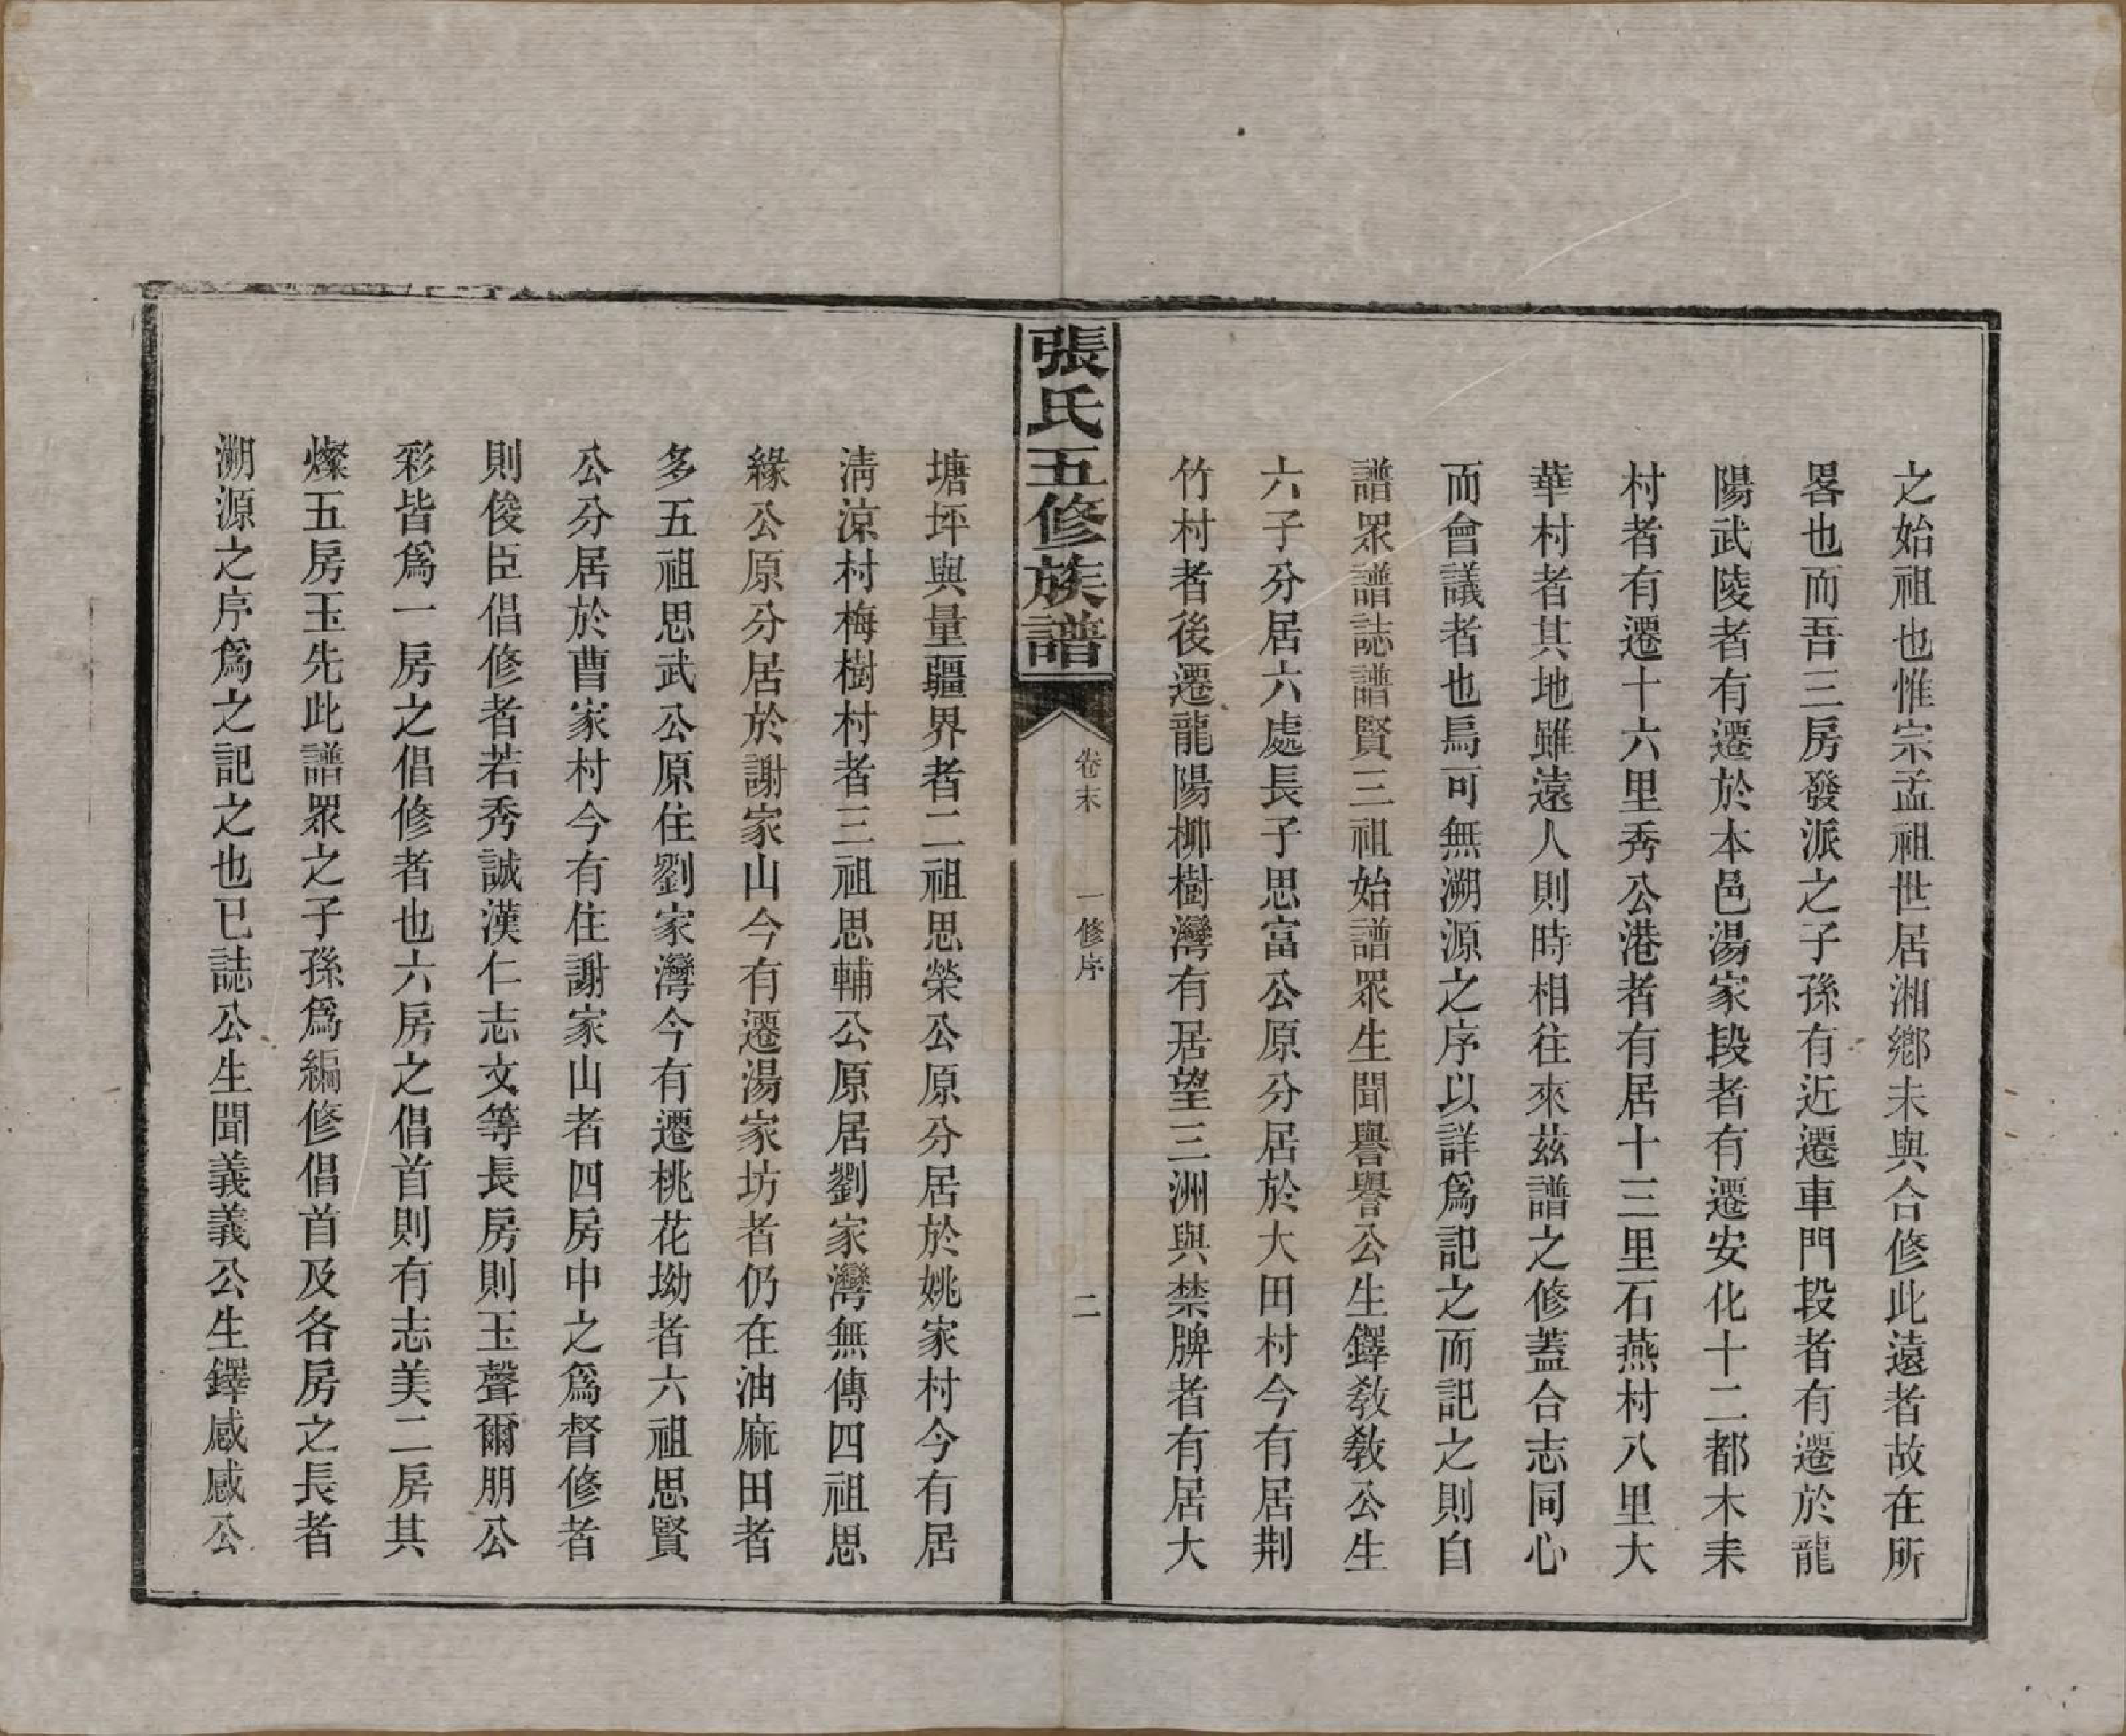 之始祖也惟宗孟祖世居湘鄉未與合修此遠者故在所
畧也而吾三房發派之子孫有近遷車門段者有遷於龍
陽武陵者有遷於本邑湯家段者有遷安化十二都木耒
村者有遷十六里秀公港者有居十三里石燕村八里大
華村者其地雖遠人則時相往來茲譜之修蓋合志同心
而會議者也烏可無溯源之序以詳爲記之而記之則自
譜眾譜誌譜賢三祖始譜眾生聞譽譽公生鐸敎敎公生
六子分居六處長子思富公原分居於大田村今有居荆
竹村者後遷龍陽柳樹灣有居望三洲與禁牌者有居大
張氏五修族譜
卷末 一修序 二
塘坪與量疆界者二祖思榮公原分居於姚家村今有居
淸涼村梅樹村者三祖思輔公原居劉家灣無傳四祖思
緣公原分居於謝家山今有遷湯家坊者仍在油麻田者
多五祖思武公原住劉家灣今有遷桃花坳者六祖思賢
公分居於曹家村今有住謝家山者四房中之爲督修者
則俊臣倡修者若秀誠漢仁志文等長房則玉聲爾朋公
彩皆爲一房之倡修者也六房之倡首則有志美二房其
燦五房玉先此譜眾之子孫爲編修倡首及各房之長者
溯源之序爲之記之也已誌公生聞義義公生鐸感感公